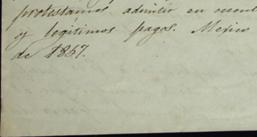 protestamos admitir en cuent
y legitimos pagos. Mexico
de 1867.